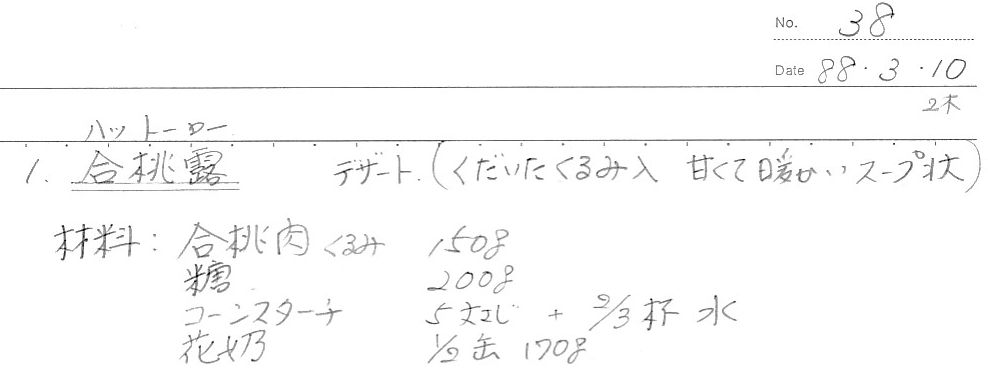 No. 38
Date 88・3・10
2木
ハットーロー
1. 合桃露 デザート.(くだいたくるみ入 甘くて暖かいスープ状)
材料: 合桃肉 くるみ 150g
糖 200g
コーンスターチ 5大さじ + 2/3杯 水
花奶 1/2缶 170g